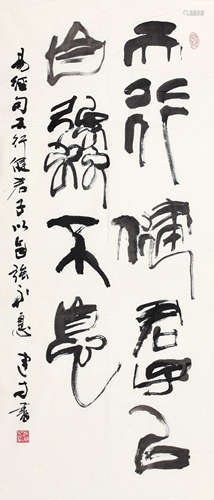 天行健君子以
自強不息
易經句天行健君子以自強不息 建 書